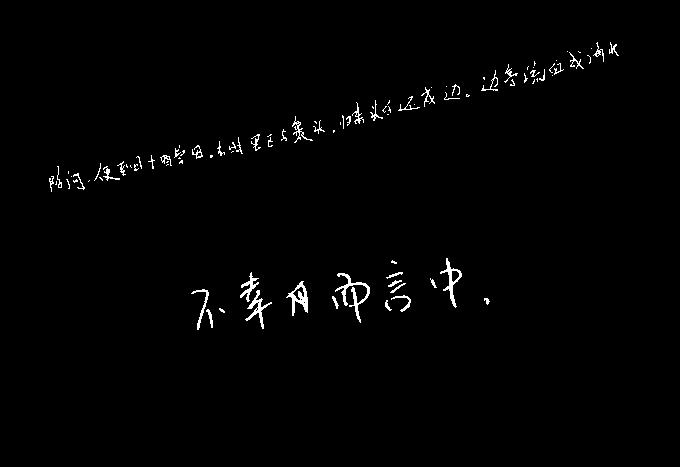 防河.便至四十西营田.去时里正与裹头.归来头白还戍边。边亭流血成海水
不幸月而言中.